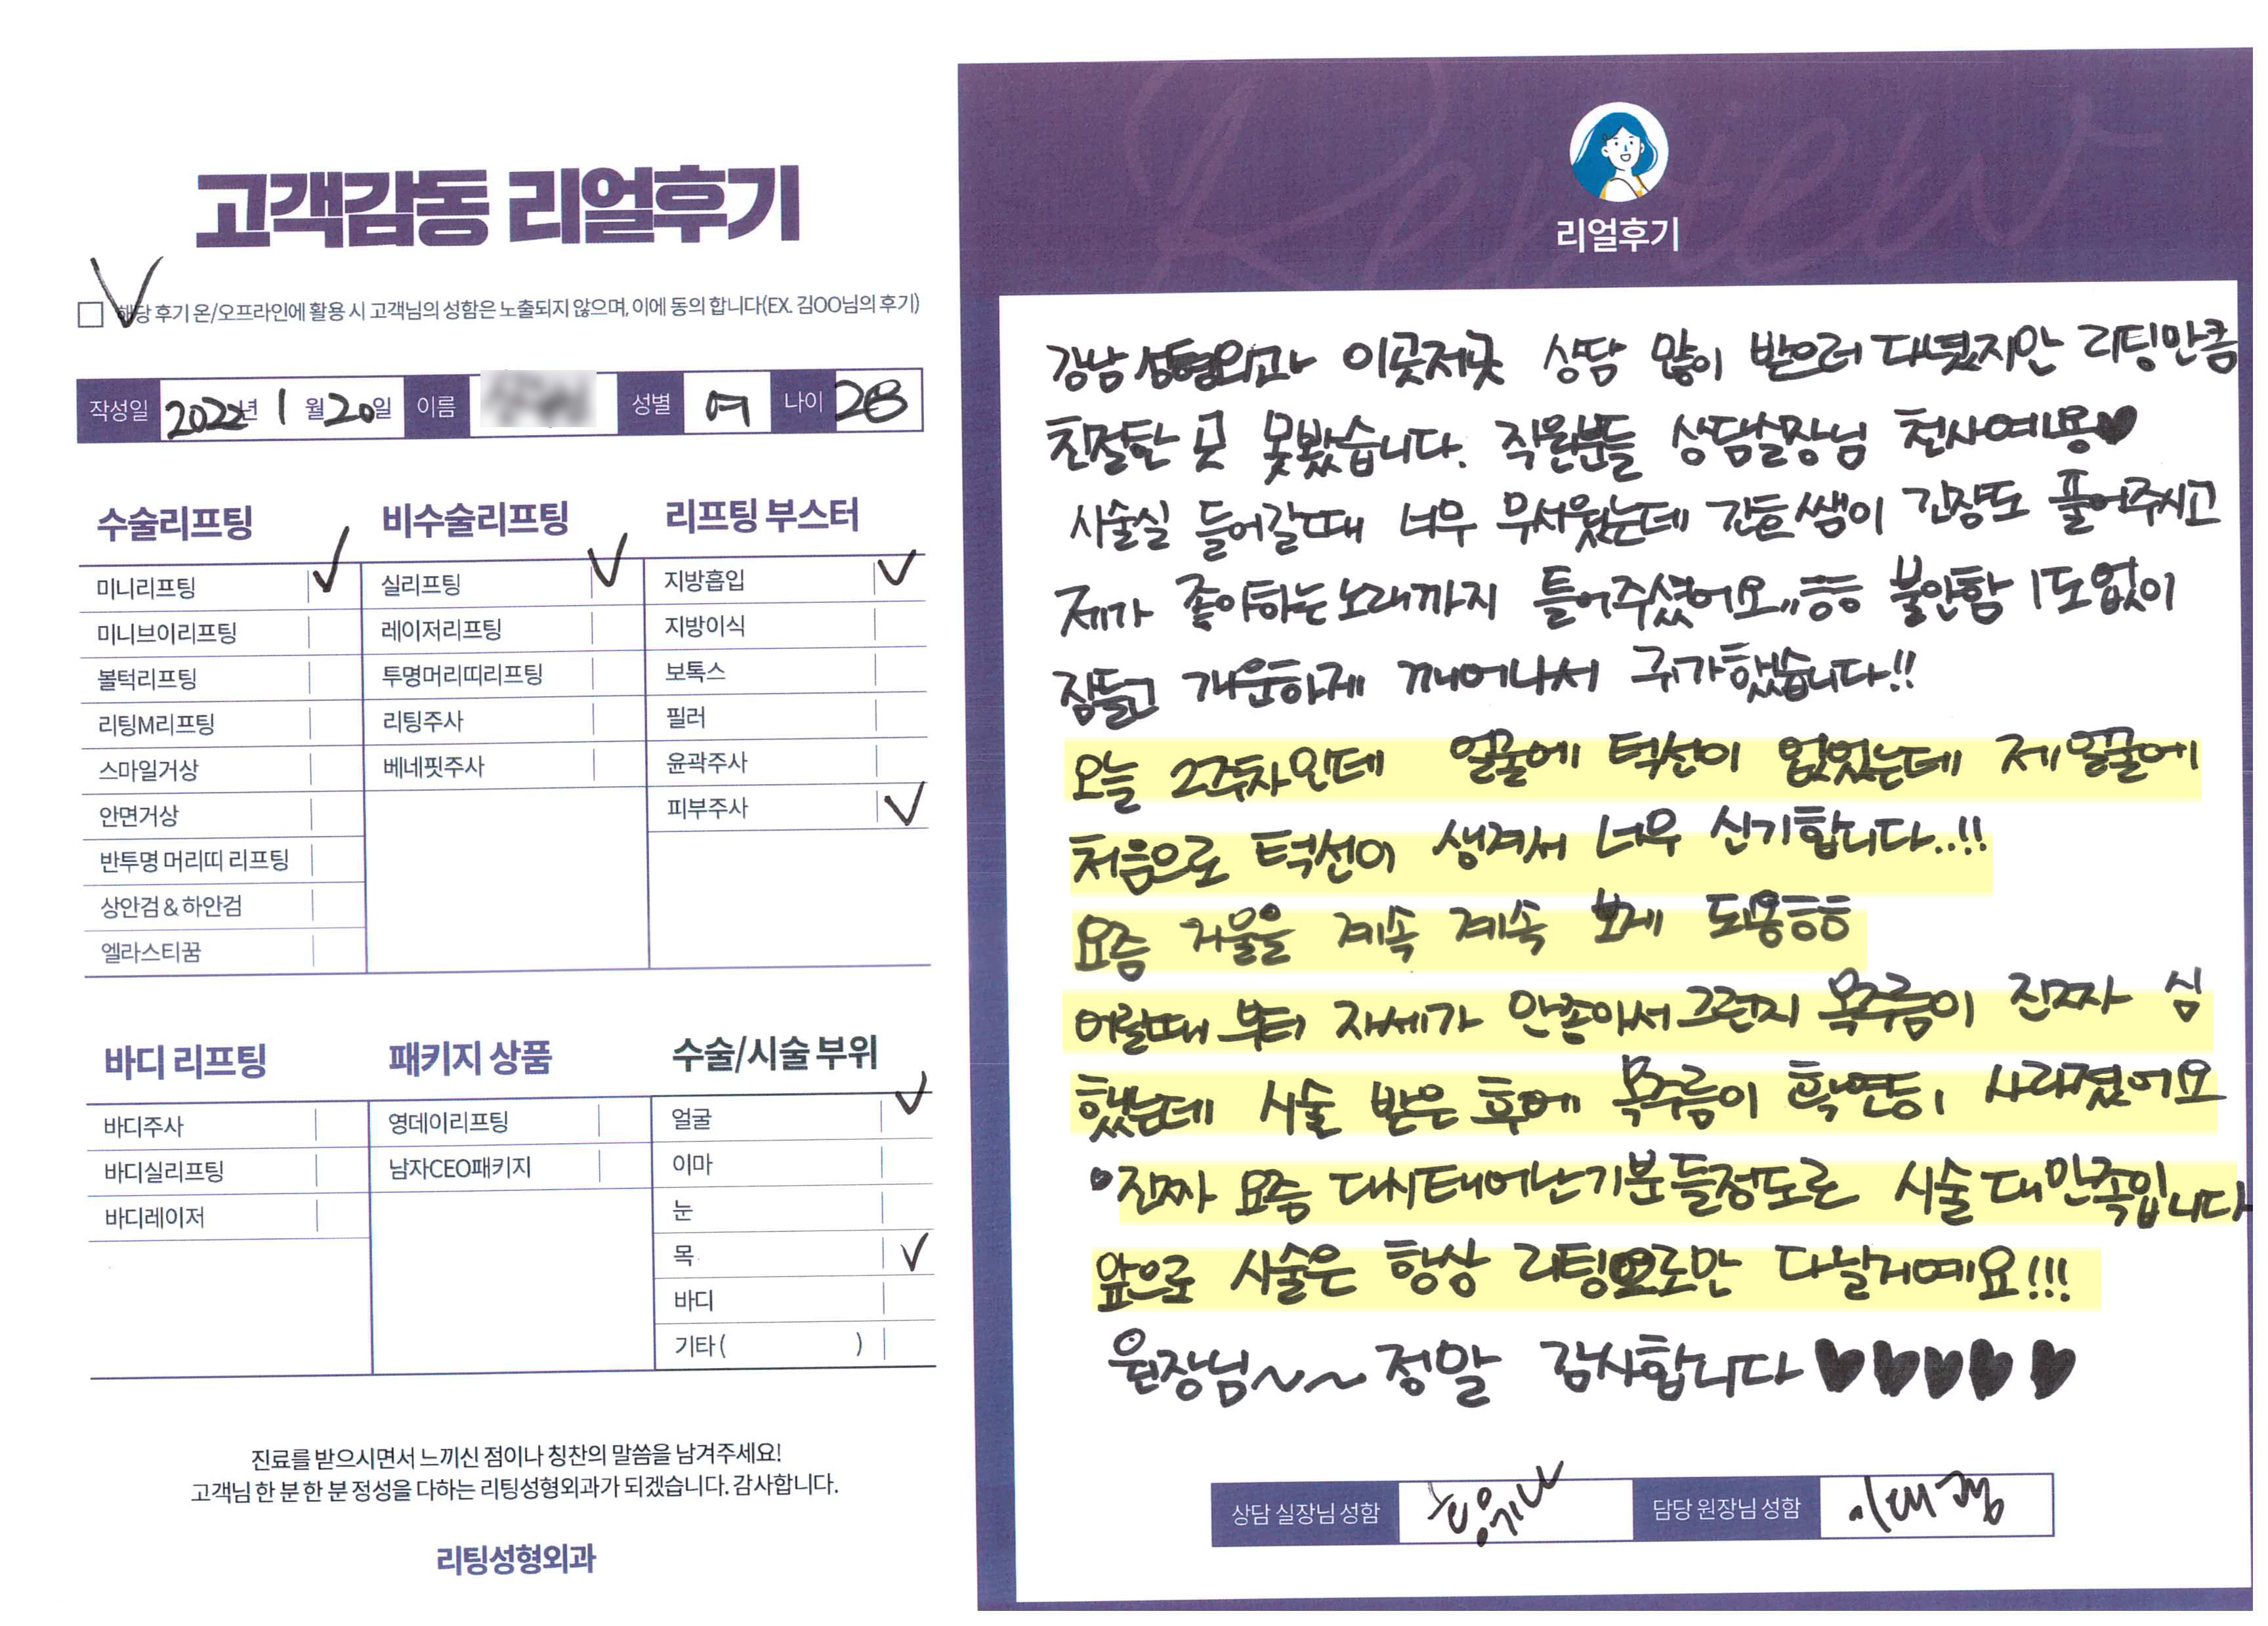 고객감동 리얼후기
해당 후기 온/오프라인에 활용 시 고객님의 성함은 노출되지 않으며, 이에 동의 합니다(EX. 김OO님의 후기)
작성일 2022년 1월 20일 이름 성별 여 나이 28
수술리프팅 비수술리프팅 리프팅 부스터
미니리프팅 실리프팅 지방흡입
미니브이리프팅 레이저리프팅 지방이식
볼턱리프팅 투명머리띠리프팅 보톡스
리팅M리프팅 리팅주사 필러
스마일거상 베네핏주사 윤곽주사
안면거상 피부주사
반투명 머리띠 리프팅
상안검 & 하안검
엘라스티꿈
바디 리프팅 패키지 상품 수술/시술 부위
바디주사 영데이리프팅 얼굴
바디실리프팅 남자CEO패키지 이마
바디레이저 눈
목
바디
기타 ( )
진료를 받으시면서 느끼신 점이나 칭찬의 말씀을 남겨주세요!
고객님 한 분 한 분 정성을 다하는 리팅성형외과가 되겠습니다. 감사합니다.
리팅성형외과
Review
리얼후기
강남 성형외과 이곳저곳 상담 많이 받으러 다녔지만 리팅만큼
친절한 곳 못봤습니다. 직원분들 상담실장님 천사예용♥
시술실 들어갈때 너무 무서웠는데 간호쌤이 긴장도 풀어주시고
제가 좋아하는노래까지 틀어주셨어요,, ㅎㅎ 불안함 1도없이
잠들고 개운하게 깨어나서 귀가했습니다!!
오늘 2주차인데 얼굴에 턱선이 없었는데 제 얼굴에
처음으로 턱선이 생겨서 너무 신기합니다..!!
요즘 거울을 계속 계속 보게 되용ㅎㅎ
어릴때 부터 자세가 안좋아서그런지 목주름이 진짜 심
했는데 시술 받은 후에 목주름이 확연히 사라졌어요
진짜 요즘 다시태어난기분들정도로 시술 대만족입니다
앞으로 시술은 항상 리팅으로만 다닐거예요!!!
원장님~~ 정말 감사합니다♥♥♥♥♥
상담 실장님 성함 담당 원장님 성함